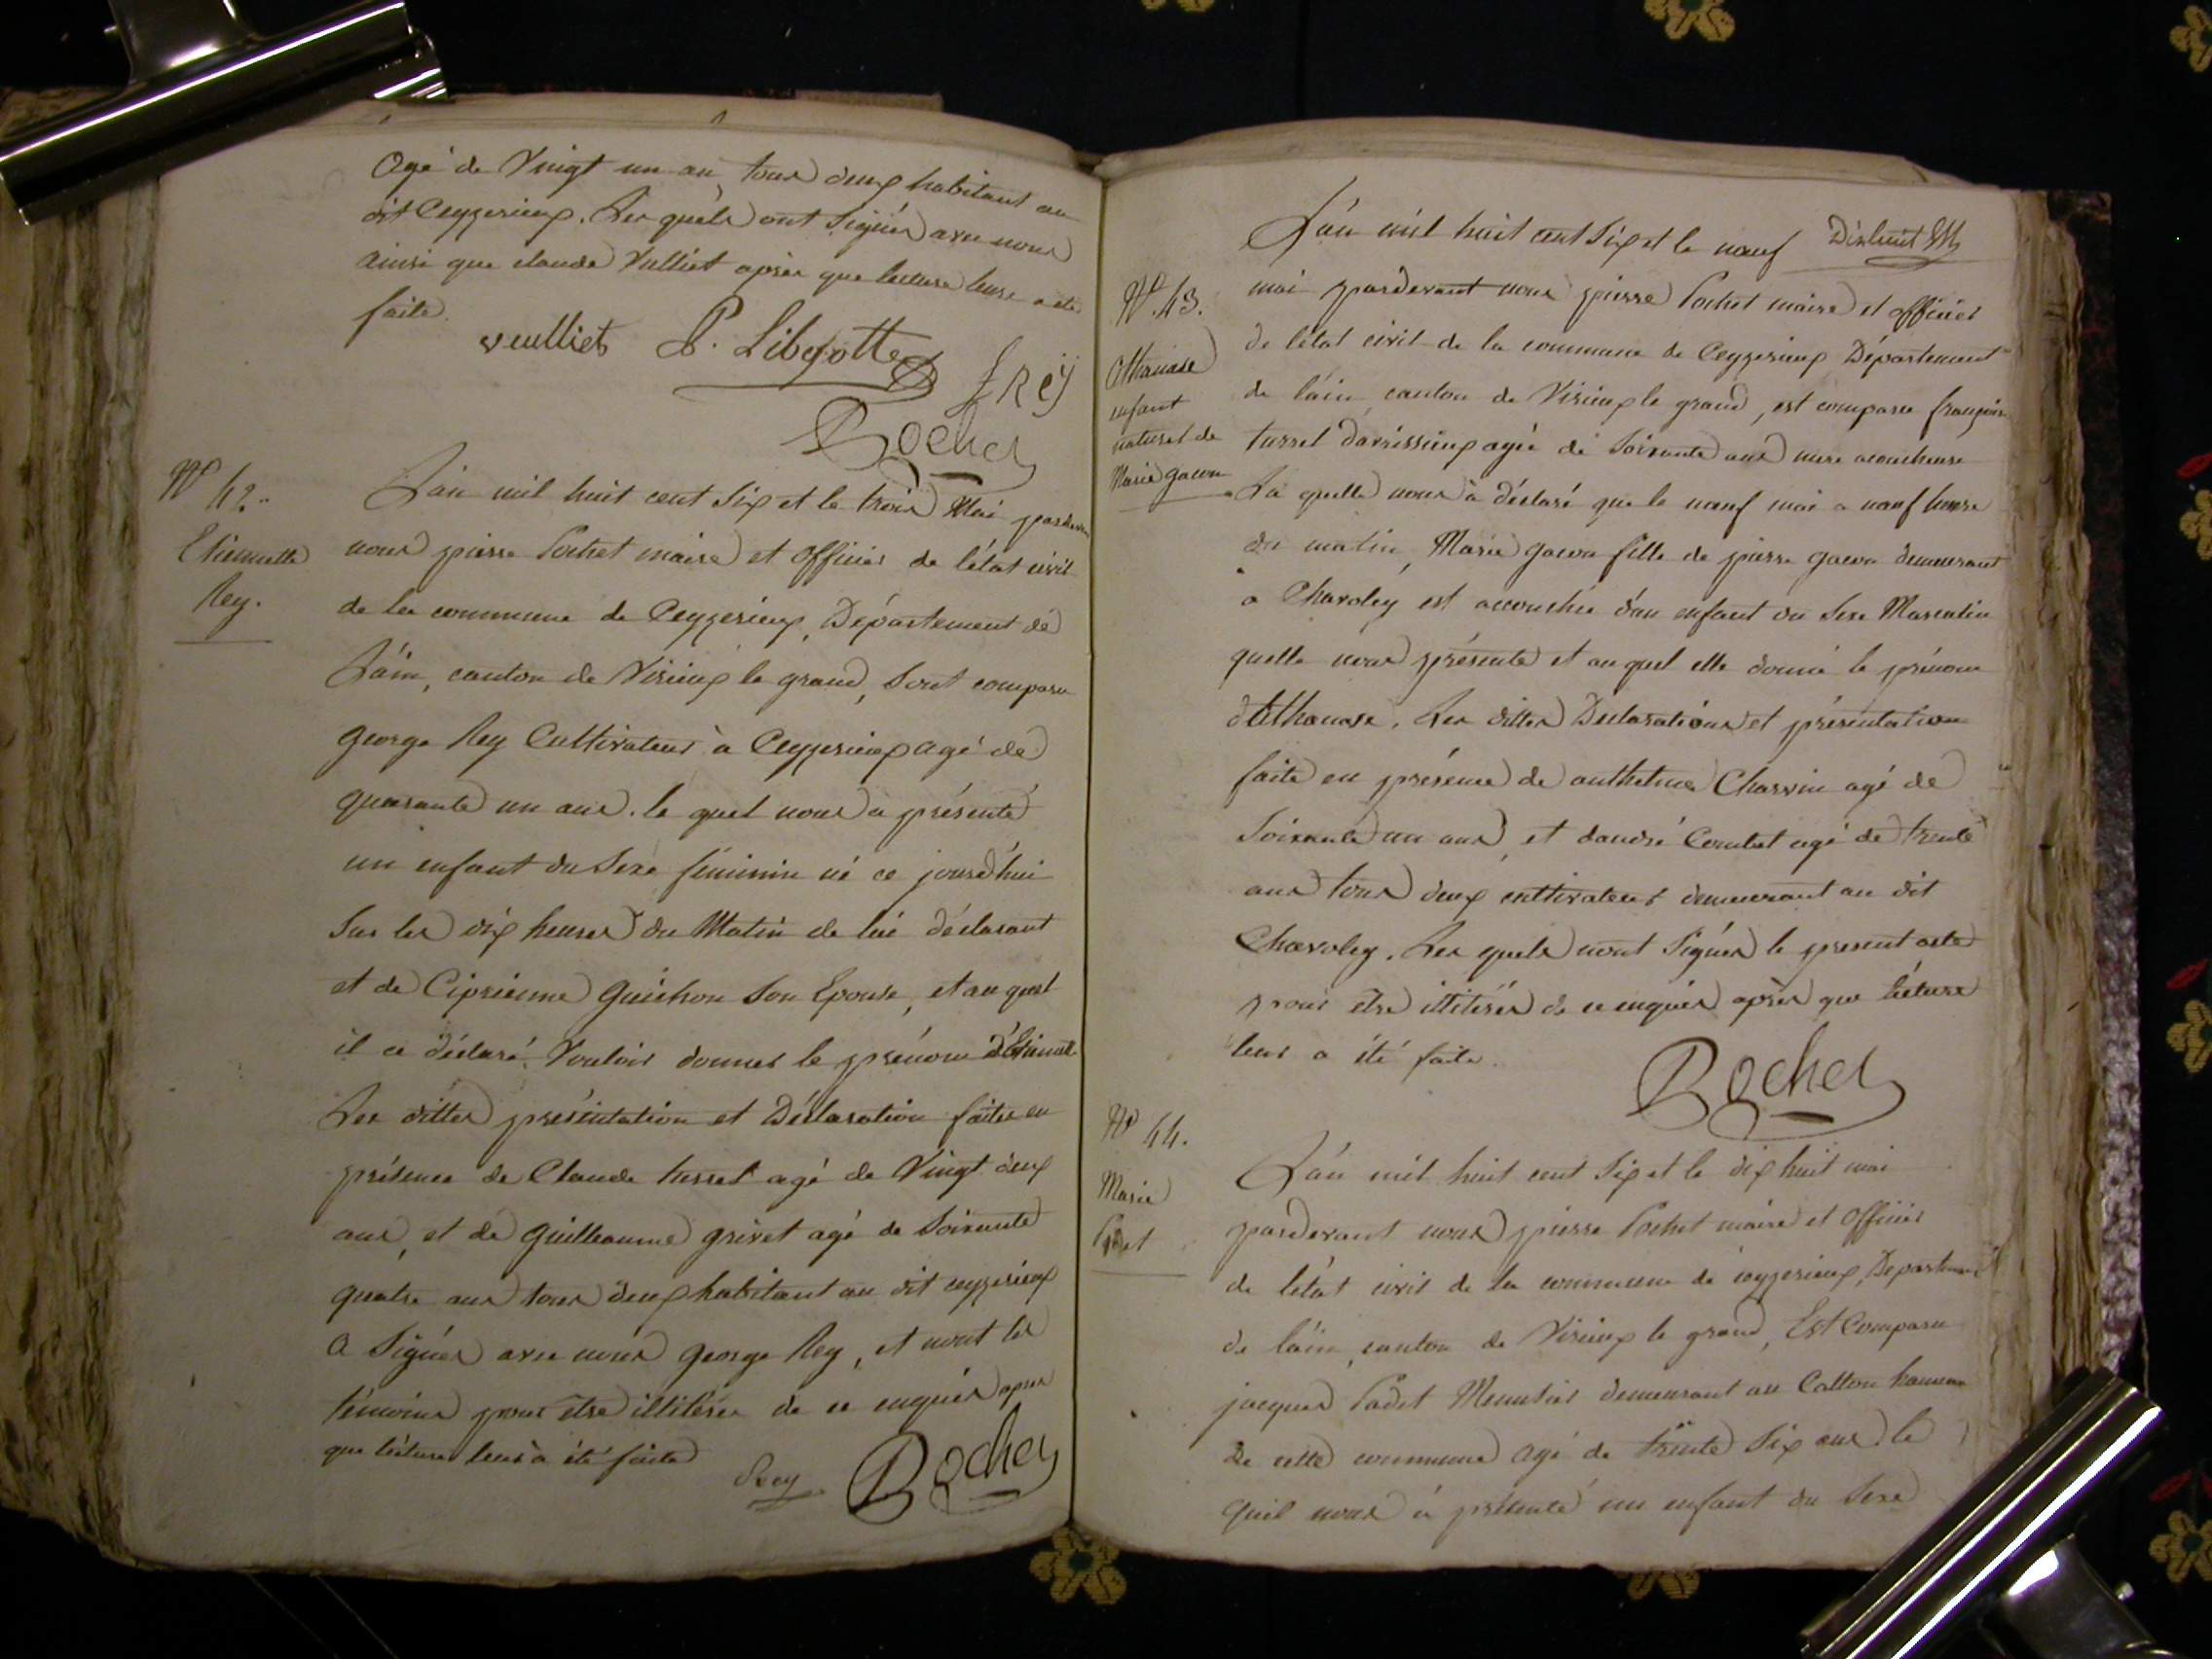 Agé de Vingt un an, tous deux habitant au
dit Ceyzerieux. Les quels ont signés avec nous
ainsi que claude Vulliet après que lecture leur a été
faite.
veulliet P. Libeyotte
f Rey
Bochet
N° 42.
Etiennette
Rey.
L'an mil huit cent six et le trois Mai pardevant
nous pierre Bochet maire et officier de l'état civil
de la commune de Ceyzerieux, Département de
L'ain, canton de Virieux le grand, sont comparu
george Rey Cultivateur à Ceyzerieux agé de
quarante un ans. le quel nous a présenté
un enfant du sexe féminin né ce jourd'hui
sur les dix heures du Matin de lui déclarant
et de Ciprienne guichon son Epouse, et au quel
il a déclaré Vouloir donner le prénom d'Etiennette
Les dittes présentation et Déclaration faites en
présence de Claude turrel agé de Vingt deux
ans, et de guilleaume grivet agé de soixante
quatre ans tous deux habitant au dit ceyzerieux
a signés avec nous george Rey, et nont les
témoins pour etre illitérés de ce enquis apres
que lecture leur à été faite
Rey Bochet
Dixhuit
N°. 43.
Athanase
enfant
naturel de
Marie gacon
L'an mil huit cent six et le neuf
mai pardevant nous pierre Bochet maire et officier
de l'état civil de la commune de Ceyzerieux Département
de l'ain, canton de Virieux le grand, est comparu françoise
turrel d'avrissieux agée de soixante ans mere acoucheuse
La quelle nous à déclaré que le neuf mai a neuf heure
du matin, Marie gacon fille de pierre gacon demeurant
à Chavoley est accouchée d'un enfant du sexe Masculin
quelle nous présente et au quel elle donne le prénom
d'Athanase. Les dittes Déclarations et présentation
faite en présence de anthelme Charvin agé de
soixante un ans, et d'andré Combet agé de trente
ans tous deux cultivateurs demeurant au dit
Chavoley. Les quels nont signés le present acte
pour etre illitérés de ce enquis après que lecture
leur a été faite.
Bochet
N° 44.
Marie
L'an mil huit cent six et le dix huit mai
pardevant nous pierre Bochet maire et officier
de l'état civil de la commune de ceyzerieux, Département
de l'ain, canton de Virieux le grand, Est Comparu
jacques Padet Menuisier demeurant au Catton hameau
de cette commune agé de trente six ans. le
quel nous à présenté un enfant du sexe